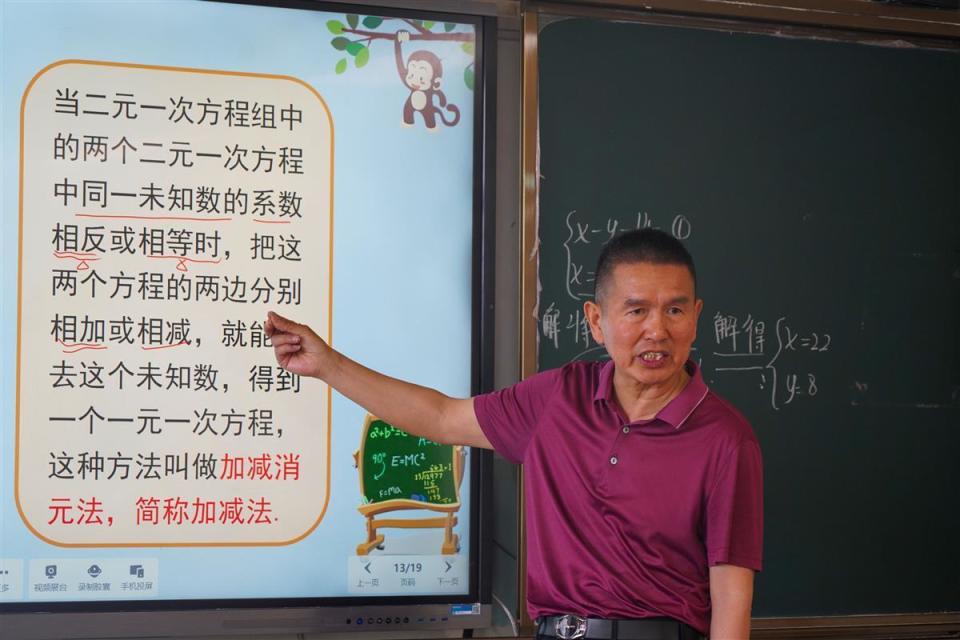 当二元一次方程组中
的两个二元一次方程
中同一未知数的系数
相反或相等时，把这
两个方程的两边分别
相加或相减，就能
去这个未知数，得到
一个一元一次方程，
这种方法叫做加减消
元法，简称加减法.
E=MC²
F=MA
视频展台
录制胶囊
手机投屏
上一页
13/19
页码
下一页
x-y=14 ①
x=
解得
x=22
y=8